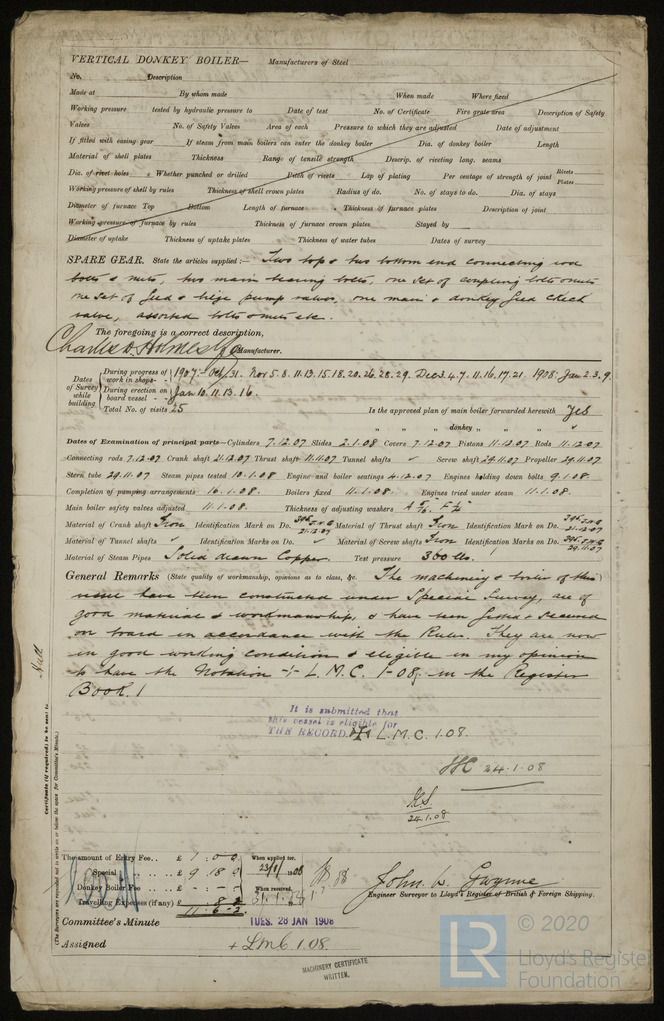 VERTICAL DONKEY BOILER— Manufacturers of Steel
No. Description
Made at By whom made When made Where fixed
Working pressure tested by hydraulic pressure to Date of test No. of Certificate Fire grate area Description of Safety
Valves No. of Safety Valves Area of each Pressure to which they are adjusted Date of adjustment
If fitted with easing gear If steam from main boilers can enter the donkey boiler Dia. of donkey boiler Length
Material of shell plates Thickness Range of tensile strength Descrip. of riveting long. seams
Dia. of rivet holes Whether punched or drilled Pitch of rivets Lap of plating Per centage of strength of joint Rivets Plates
Working pressure of shell by rules Thickness of shell crown plates Radius of do. No. of stays to do. Dia. of stays
Diameter of furnace Top Bottom Length of furnace Thickness of furnace plates Description of joint
Working pressure of furnace by rules Thickness of furnace crown plates Stayed by
Diameter of uptake Thickness of uptake plates Thickness of water tubes Dates of survey
SPARE GEAR. State the articles supplied:— Two top & two bottom end connecting rod
bolts & nuts, two main bearing bolts, one set of coupling bolts & nuts
one set of feed & bilge pump valves, one main & donkey feed check
valve, assorted bolts & nuts etc.
The foregoing is a correct description,
Charles D. Holmes & Co Manufacturer.
Dates of Survey while building During progress of work in shops - - 1907:- Oct 31. Nov 5. 8. 11. 13. 15. 18. 20. 26. 28. 29. Dec 3. 4. 7. 11. 16. 17. 21. 1908: Jan 2. 3. 9.
During erection on board vessel - - Jan 10. 11. 13. 16.
Total No. of visits 25 Is the approved plan of main boiler forwarded herewith Yes
" " " donkey " " "
Dates of Examination of principal parts—Cylinders 7.12.07 Slides 2.1.08 Covers 7.12.07 Pistons 11.12.07 Rods 11.12.07
Connecting rods 7.12.07 Crank shaft 21.12.07 Thrust shaft 11.11.07 Tunnel shafts ✓ Screw shaft 29.11.07 Propeller 29.11.07
Stern tube 29.11.07 Steam pipes tested 10.1.08 Engine and boiler seatings 4.12.07 Engines holding down bolts 9.1.08
Completion of pumping arrangements 16.1.08. Boilers fixed 11.1.08. Engines tried under steam 11.1.08.
Main boiler safety valves adjusted 11.1.08. Thickness of adjusting washers
Material of Crank shaft Iron Identification Mark on Do. 21.12.07 Material of Thrust shaft Iron Identification Mark on Do. 21.12.07
Material of Tunnel shafts ✓ Identification Marks on Do. ✓ Material of Screw shafts Iron Identification Marks on Do. 29.11.07
Material of Steam Pipes Solid drawn Copper. Test pressure 360 lbs.
General Remarks (State quality of workmanship, opinions as to class, &c. The machinery & boiler of this
vessel have been constructed under Special Survey, are of
good material & workmanship, & have been fitted & secured
on board in accordance with the Rules. They are now
in good working condition & eligible in my opinion
to have the Notation + L.M.C. 1-08, in the Register
Book.
Hull
Certificate (if required) to be sent to
(The Surveyors are requested not to write on or below the space for Committee's Minute.)
It is submitted that
this vessel is eligible for
THE RECORD. + L.M.C. 1.08.
24.1.08
24.1.08
The amount of Entry Fee.. £ 1 : 0 : 0 When applied for,
Special .. .. £ 9 : 18 : 0 23/1/1908
Donkey Boiler Fee .. £ - : - : - When received,
Travelling Expenses (if any) £ : 8 : 2
11.6.2
John W. Gwynne
Engineer Surveyor to Lloyd's Register of British & Foreign Shipping.
Committee's Minute TUES. 28 JAN 1908
Assigned + LMC 1.08
MACHINERY CERTIFICATE
WRITTEN.
© 2020
LR Lloyd's Register
Foundation